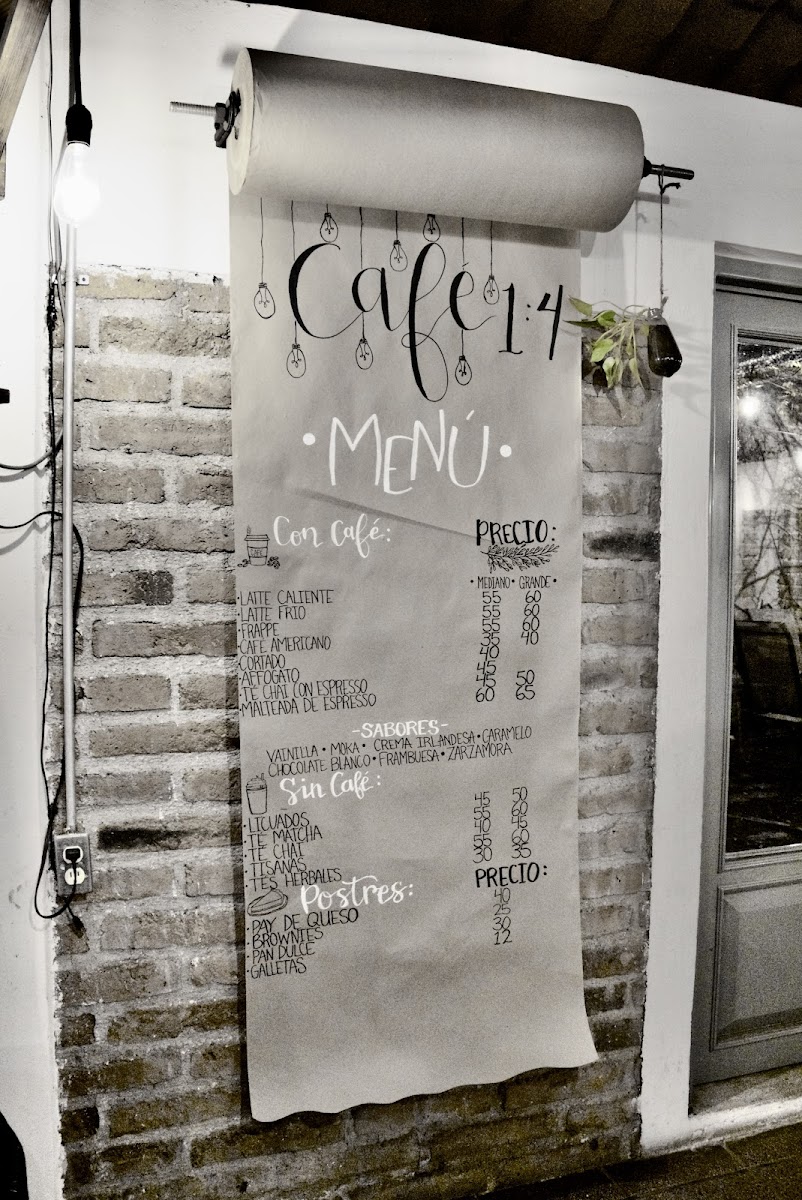 Café 1:4
• MENÚ •
Con Café: PRECIO:
• MEDIANO • GRANDE •
• LATTE CALIENTE 55 60
• LATTE FRIO 55 60
• FRAPPE 55 60
• CAFE AMERICANO 35 40
• CORTADO 40
• AFFOGATO 45
• TE CHAI CON ESPRESSO 45 50
• MALTEADA DE ESPRESSO 60 65
-SABORES-
VAINILLA • MOKA • CREMA IRLANDESA • CARAMELO
CHOCOLATE BLANCO • FRAMBUESA • ZARZAMORA
Sin Café:
• LICUADOS 45 50
• TE MATCHA 55 60
• TE CHAI 40 45
• TISANAS 55 60
• TES HERBALES 30 35
Postres: PRECIO:
• PAY DE QUESO 40
• BROWNIES 25
• PAN DULCE 30
• GALLETAS 12